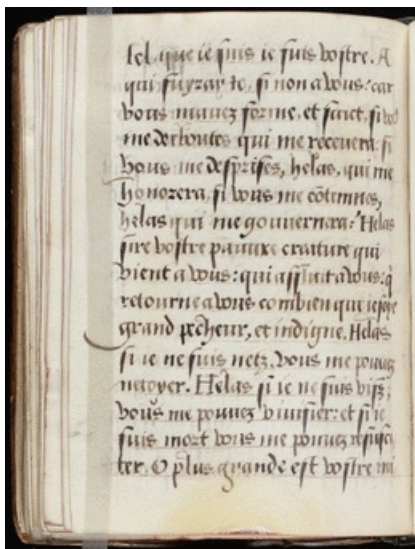 tel que ie suis ie suis vostre. A
qui fuyray ie, si non a vous: car
vous mauez forme, et faict, si vo9
me deboutes qui me recevera: si
vous me desprises, helas, qui me
honorera, si vous me cõtemnes,
helas qui me gouvernera? Helas
sire vostre pauure creature qui
vient a vous: qui affuit a vous: q̃
retourne a vous combien que ie soye
grand pecheur, et indigne. Helas
si ie ne suis netz, vous me pouuez
netoyer. Helas si ie ne suis vifz,
vous me pouuez viuifier: et si ie
suis mort vous me pouuez resusci
ter. O plus grande est vostre mi